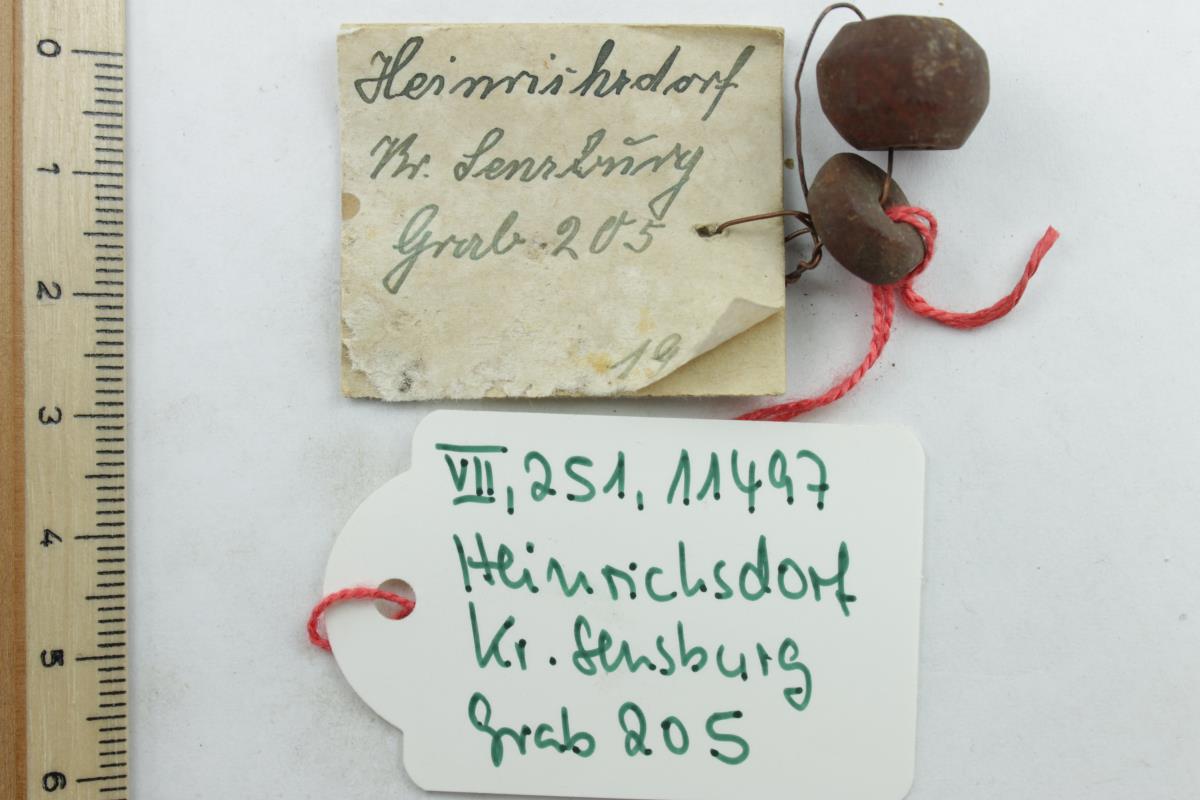 Heinrichsdorf
Kr. Sensburg
Grab 205
19
VII, 251, 11497
Heinrichsdorf
Kr. Sensburg
Grab 205
0
1
2
3
4
5
6